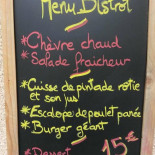 Menu Bistrot
*Chèvre chaud
*Salade fraicheur
*Cuisse de pintade rotie
et son jus
*Escalope de poulet panée
*Burger géant
*Dessert
15€